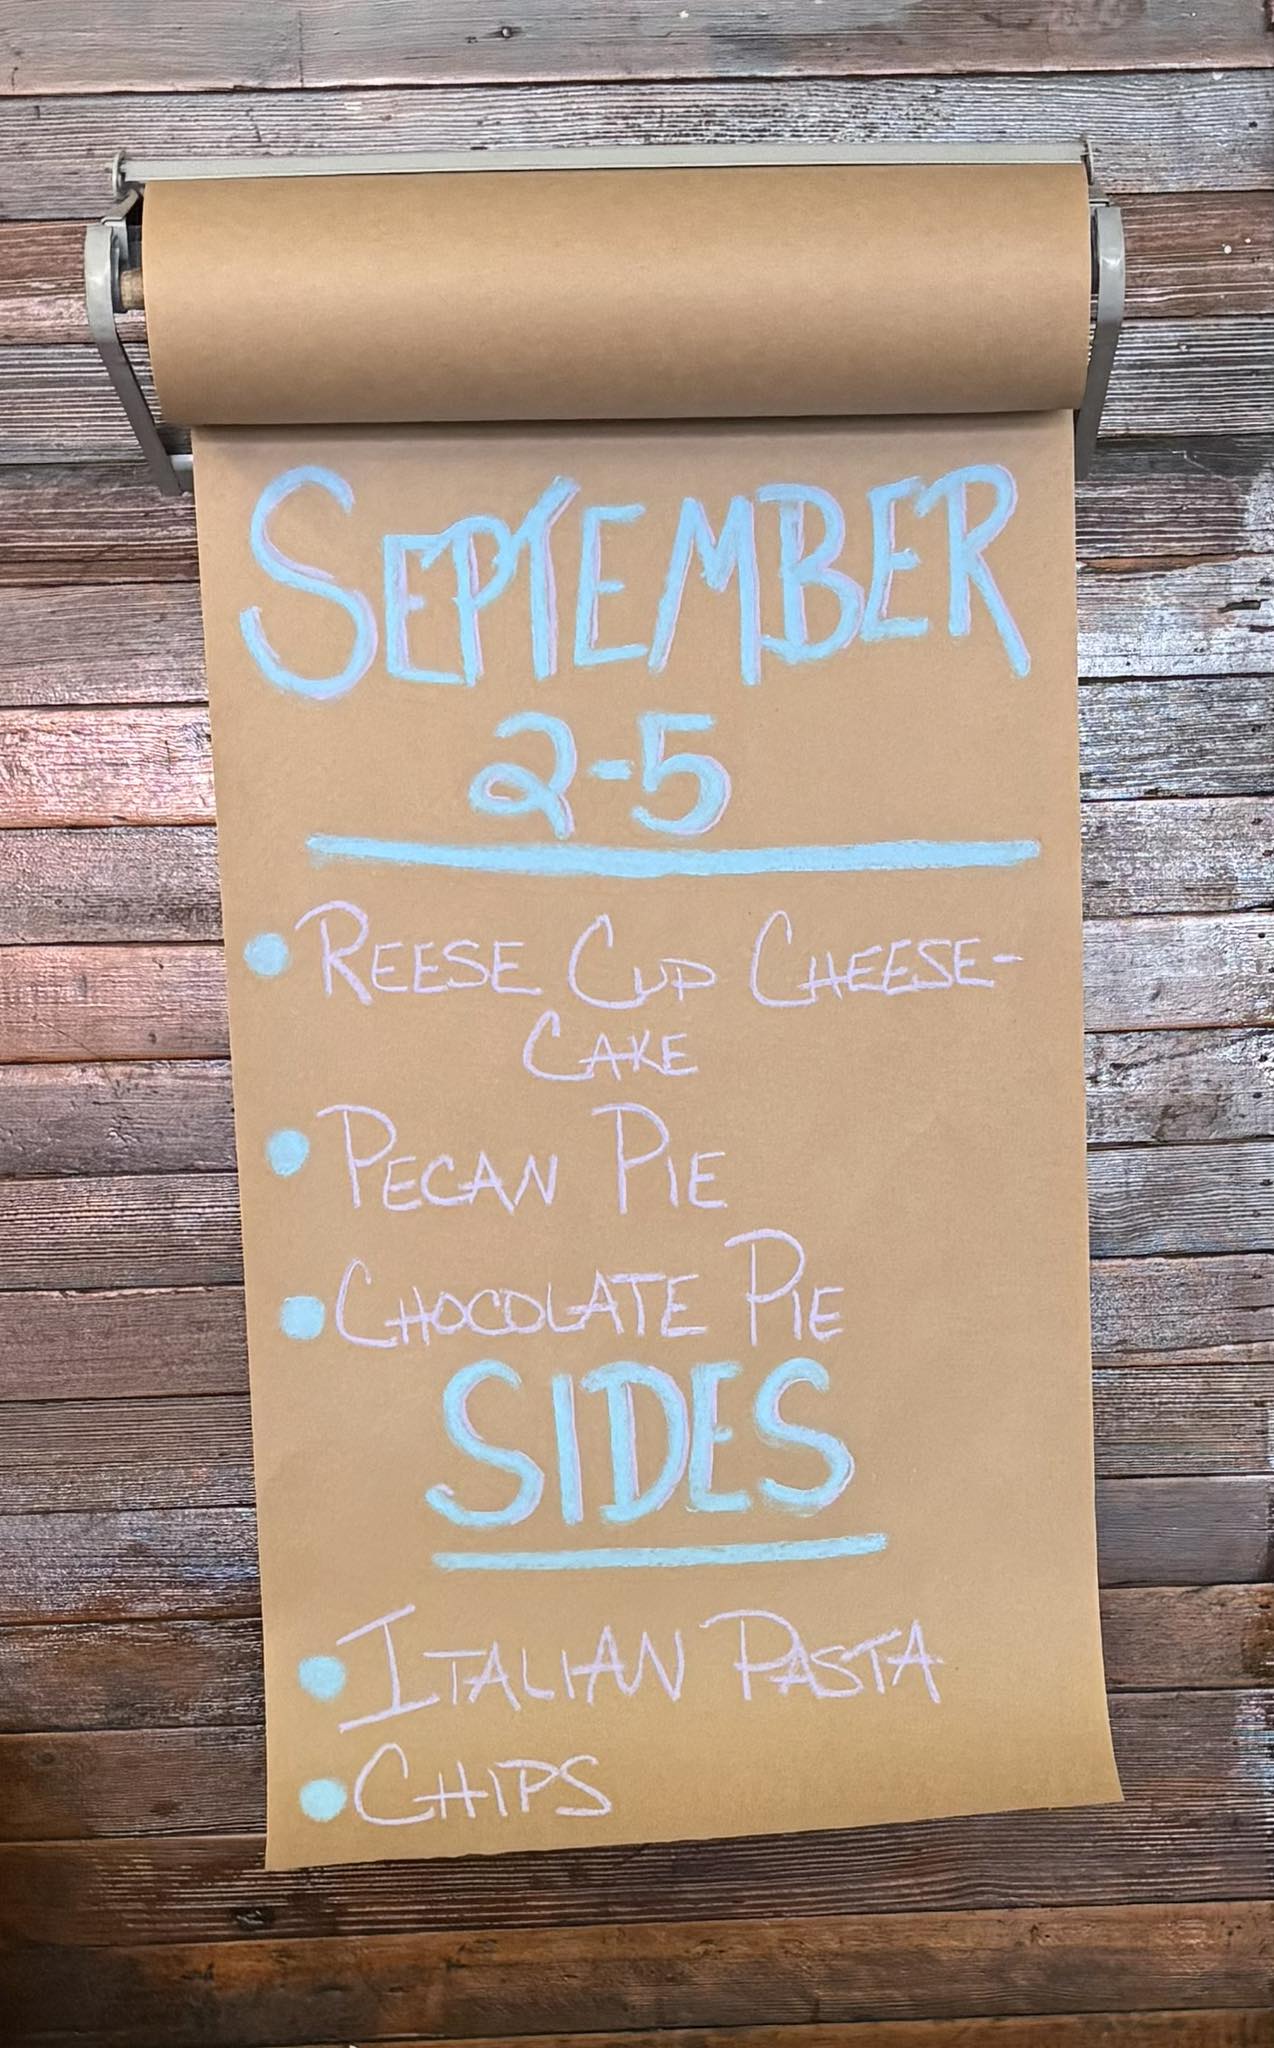 SEPTEMBER
2-5
• REESE CUP CHEESE-
CAKE
• PECAN PIE
• CHOCOLATE PIE
SIDES
• ITALIAN PASTA
• CHIPS